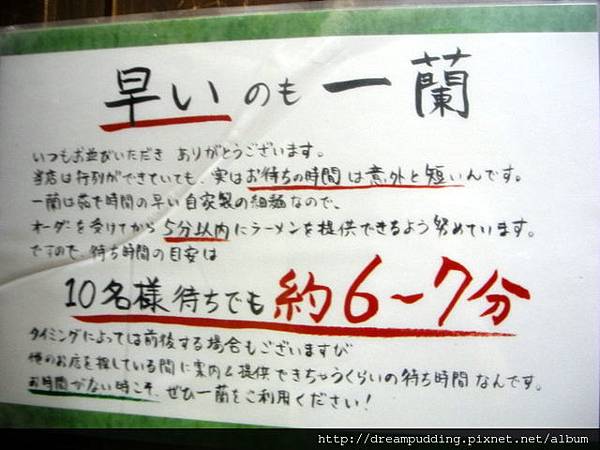 早いのも一蘭
いつもお並びいただき ありがとうございます。
当店は行列ができていても、実はお待ちの時間は意外と短いんです。
一蘭は茹で時間の早い自家製の細麺なので、
オーダーを受けてから5分以内にラーメンを提供できるよう努めています。
ですので、待ち時間の目安は
10名様待ちでも約6〜7分
タイミングによっては前後する場合もございますが
他のお店を探している間に案内&提供できちゃうくらいの待ち時間なんです。
お時間がない時こそ、ぜひ一蘭をご利用ください!
http://dreampudding.pixnet.net/album